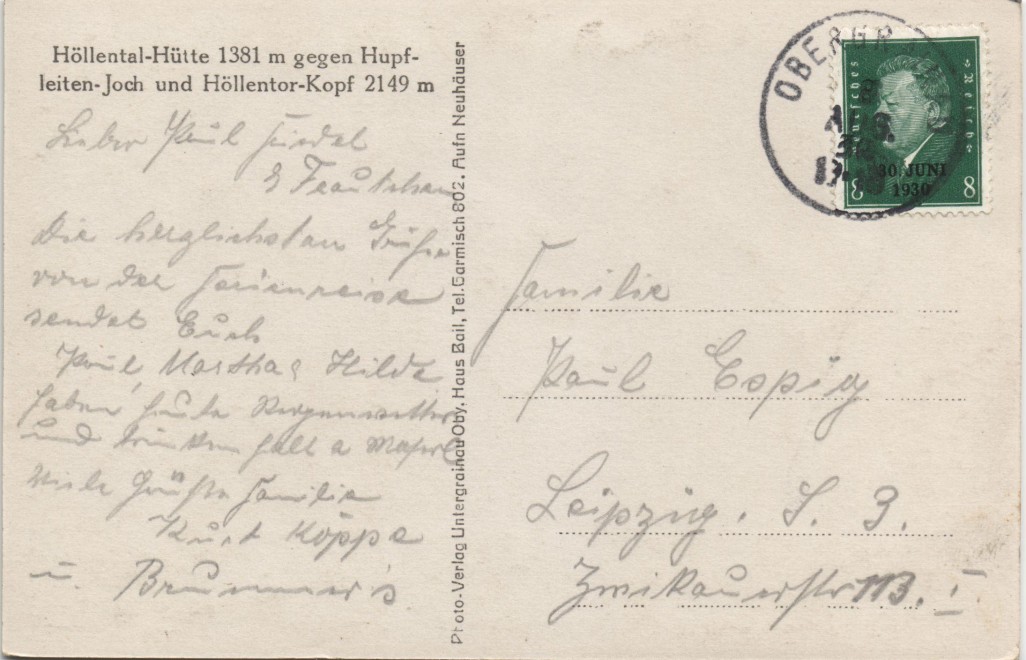 Höllental-Hütte 1381 m gegen Hupf-
leiten-Joch und Höllentor-Kopf 2149 m
Lieber Paul
&
Die herzlichsten Grüße
von der Ferienreise
sendet Euch
Paul, Martha & Hilda
haben heute Regenwetter
und trinken halt a
Viele Grüße Familie
Kurt Köppe
u. Brummer's
Photo-Verlag Untergrainau Oby, Haus Bail, Tel. Garmisch 802. Aufn Neuhäuser
OBERGR
8
30
Deutsches
Reich
30. JUNI
1930
8 8
Familie
Paul Espig
Leipzig. S. 3.
Zwikauerstr 113. I